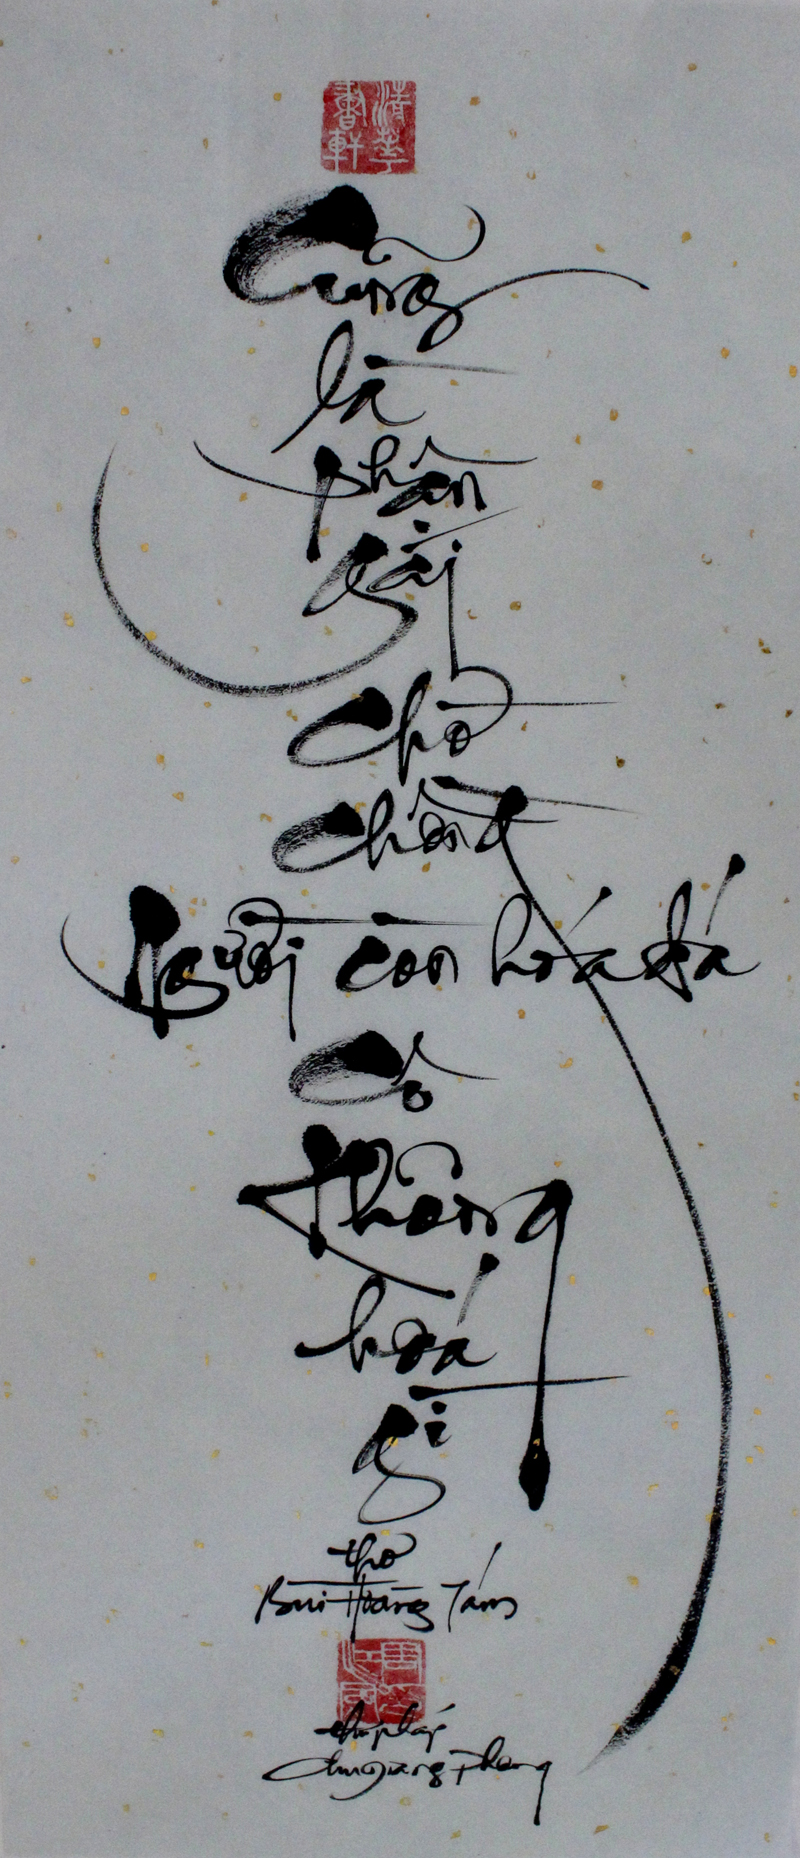 清華書軒
Cũng
là
phận
gái
chờ
chồng
Người còn hóa đá
Cô
không
hoá
gì
thơ
Bùi Hoàng Tám
thư pháp
Chu Giang Phong